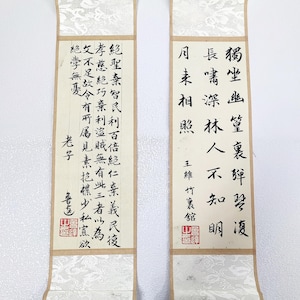 獨坐幽篁裏彈琴復
長嘯深林人不知明
月来相照
王維 竹裏館
絕聖棄智民利百倍絕仁棄義民復
孝慈絕巧棄利盜賊無有此三者以為
文不足故令有所屬見素抱樸少私寡欲
絕學無憂
老子